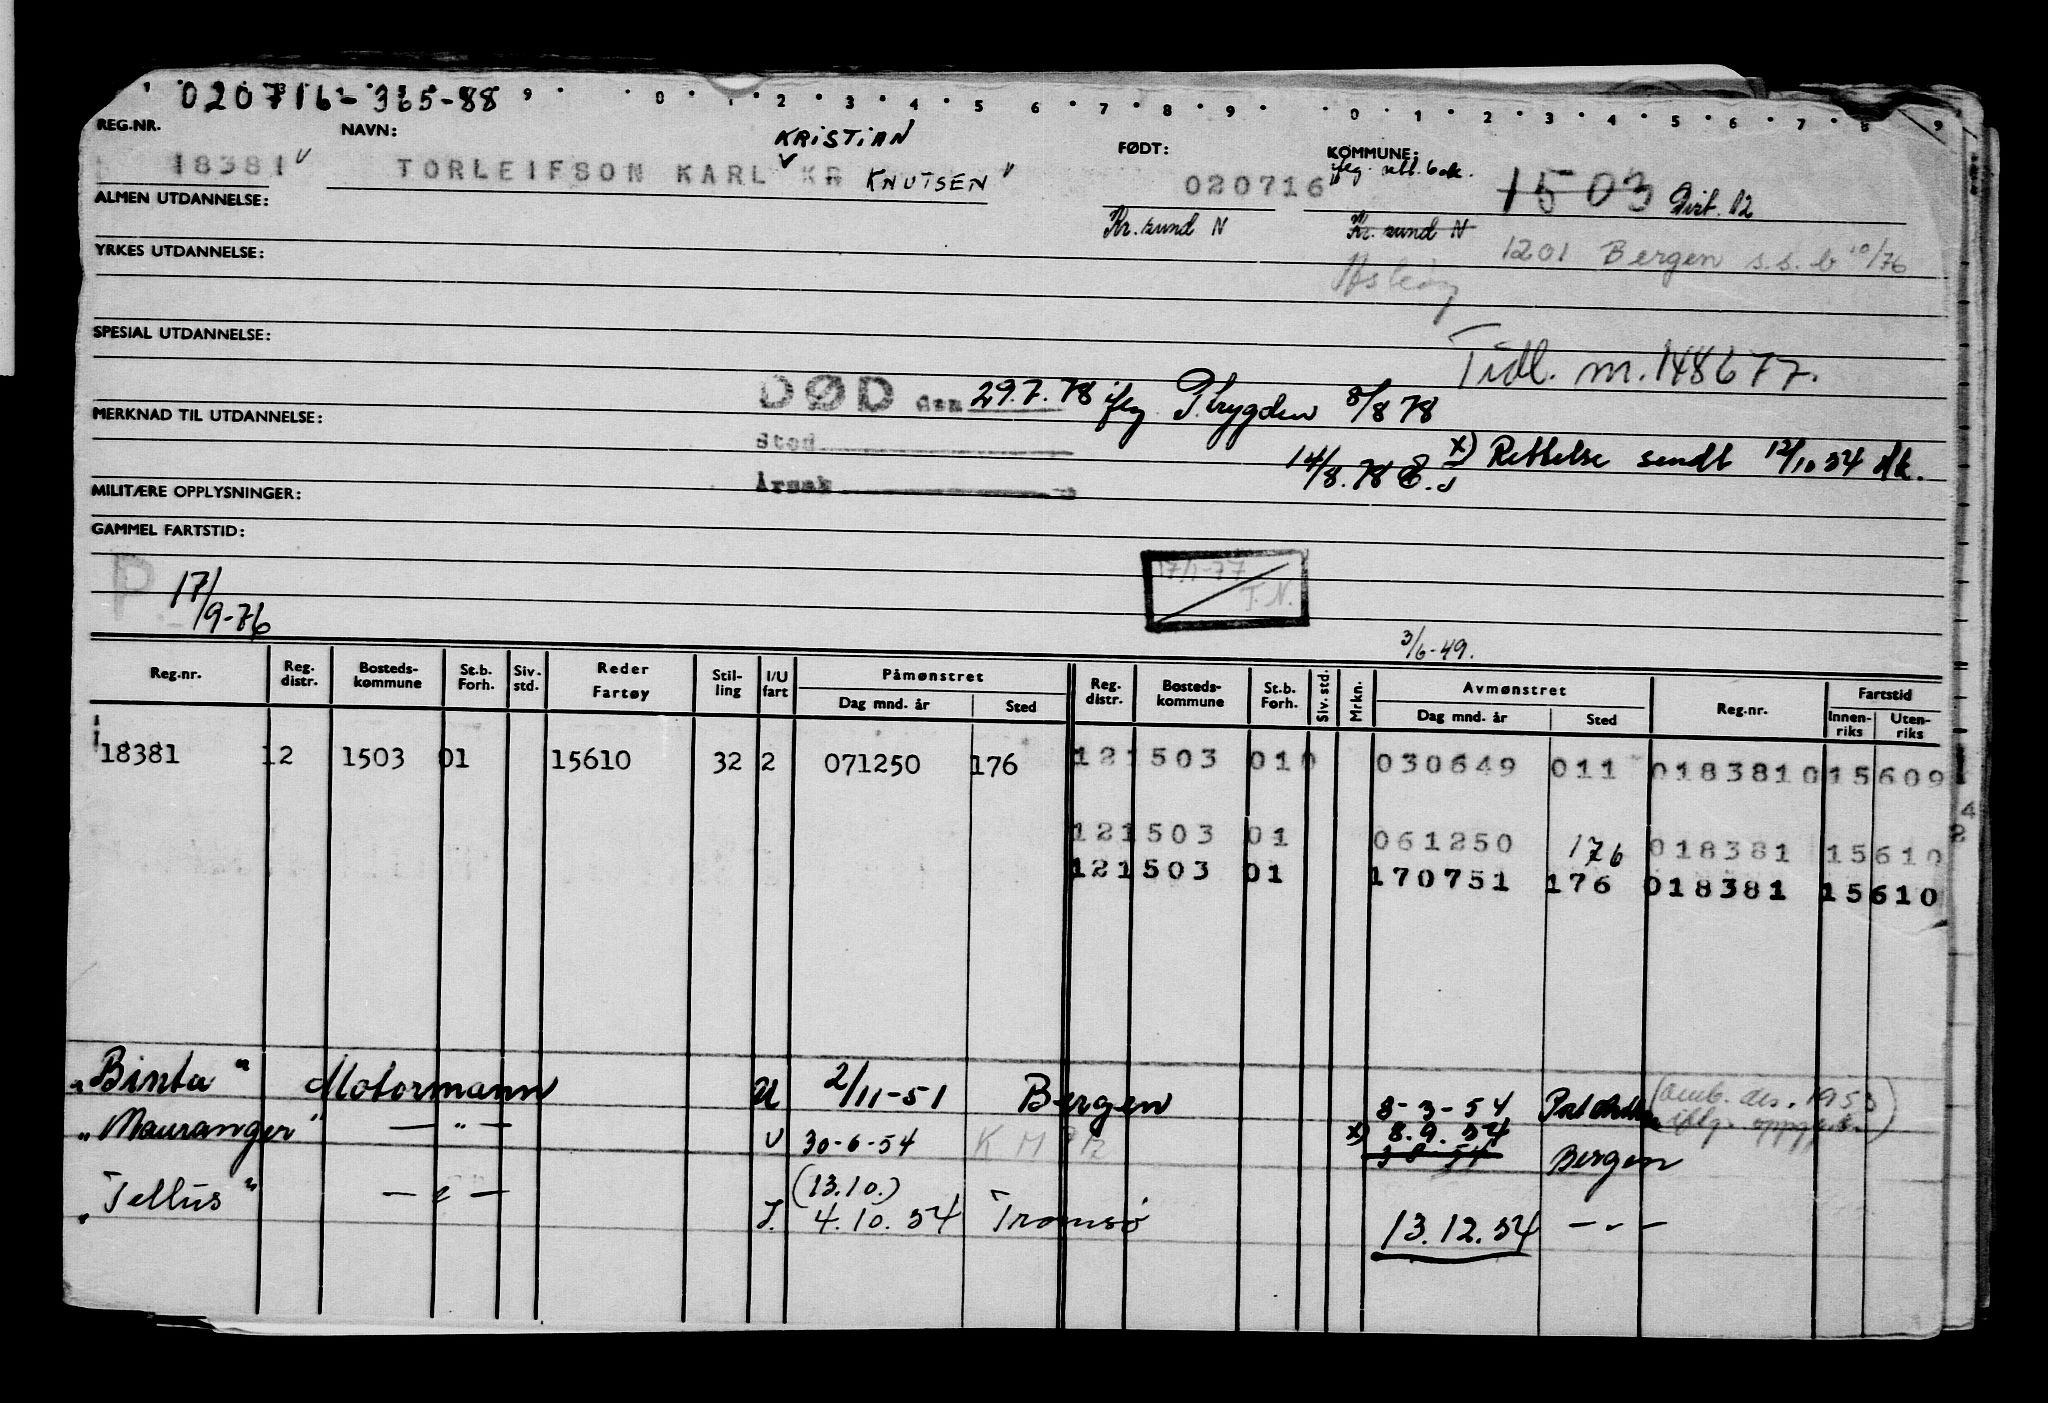 020716-365-88
0 1 2 3 4 5 6 7 8 9 0 1 2 3 4 5 6 7 8 9
REG.NR. NAVN: KRISTIAN FØDT: KOMMUNE:
18381 TORLEIFSON KARL KR KNUTSEN 020716 1503 Dist. 12
ALMEN UTDANNELSE: Kr. sund N Kr. sund N
YRKES UTDANNELSE: 1201 Bergen s.s.b 10/76
Askøy
SPESIAL UTDANNELSE:
Tidl. m. 148677.
DØD den 29.7.78 iflg Trygden 8/8 78
MERKNAD TIL UTDANNELSE:
Sted x) Rettelse sendt 12/10 54
14/8.78
Årsak
MILITÆRE OPPLYSNINGER:
GAMMEL FARTSTID:
P 17/9-76 17/1-77 T.N.
3/6-49.
Reg.nr. Reg. distr. Bosteds-kommune St.b. Forh. Siv. std. Reder Fartøy Stil-ling I/U fart Påmønstret Dag mnd. år Sted Reg. distr. Bosteds-kommune St.b. Forh. Siv. std. Mrkn. Avmønstret Dag mnd. år Sted Reg.nr. Fartstid Innen-riks Uten-riks
18381 12 1503 01 15610 32 2 071250 176 121503 010 030649 011 018381015609
121503 01 061250 176 018381 15610
121503 01 170751 176 018381 15610
"Binta" Motormann U 2/11-51 Bergen 8-3-54 (omb. des. 1953
"Mauranger" — " — U 30-6-54 x) 8.9.54 Bergen
"Tellus" — " — I. (13.10.) 4.10.54 Tromsø 13.12.54 — " —